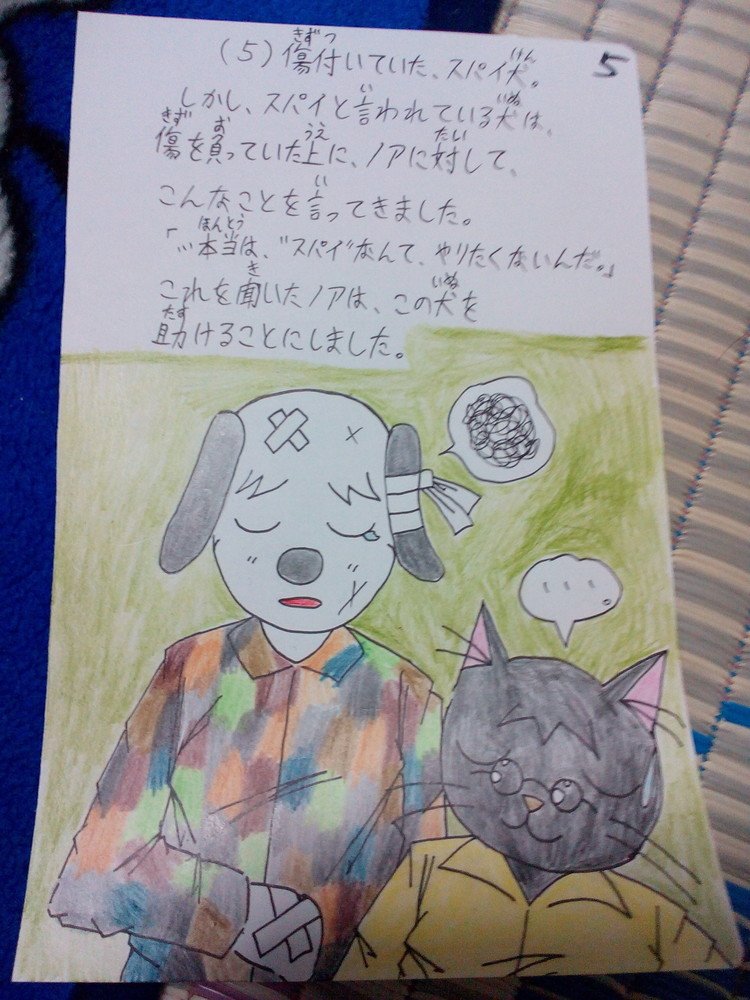 (5)傷付いていた、スパイ犬。
5
しかし、スパイと言われている犬は、
傷を負っていた上に、ノアに対して、
こんなことを言ってきました。
「…本当は、"スパイ"なんて、やりたくないんだ。」
これを聞いたノアは、この犬を
助けることにしました。